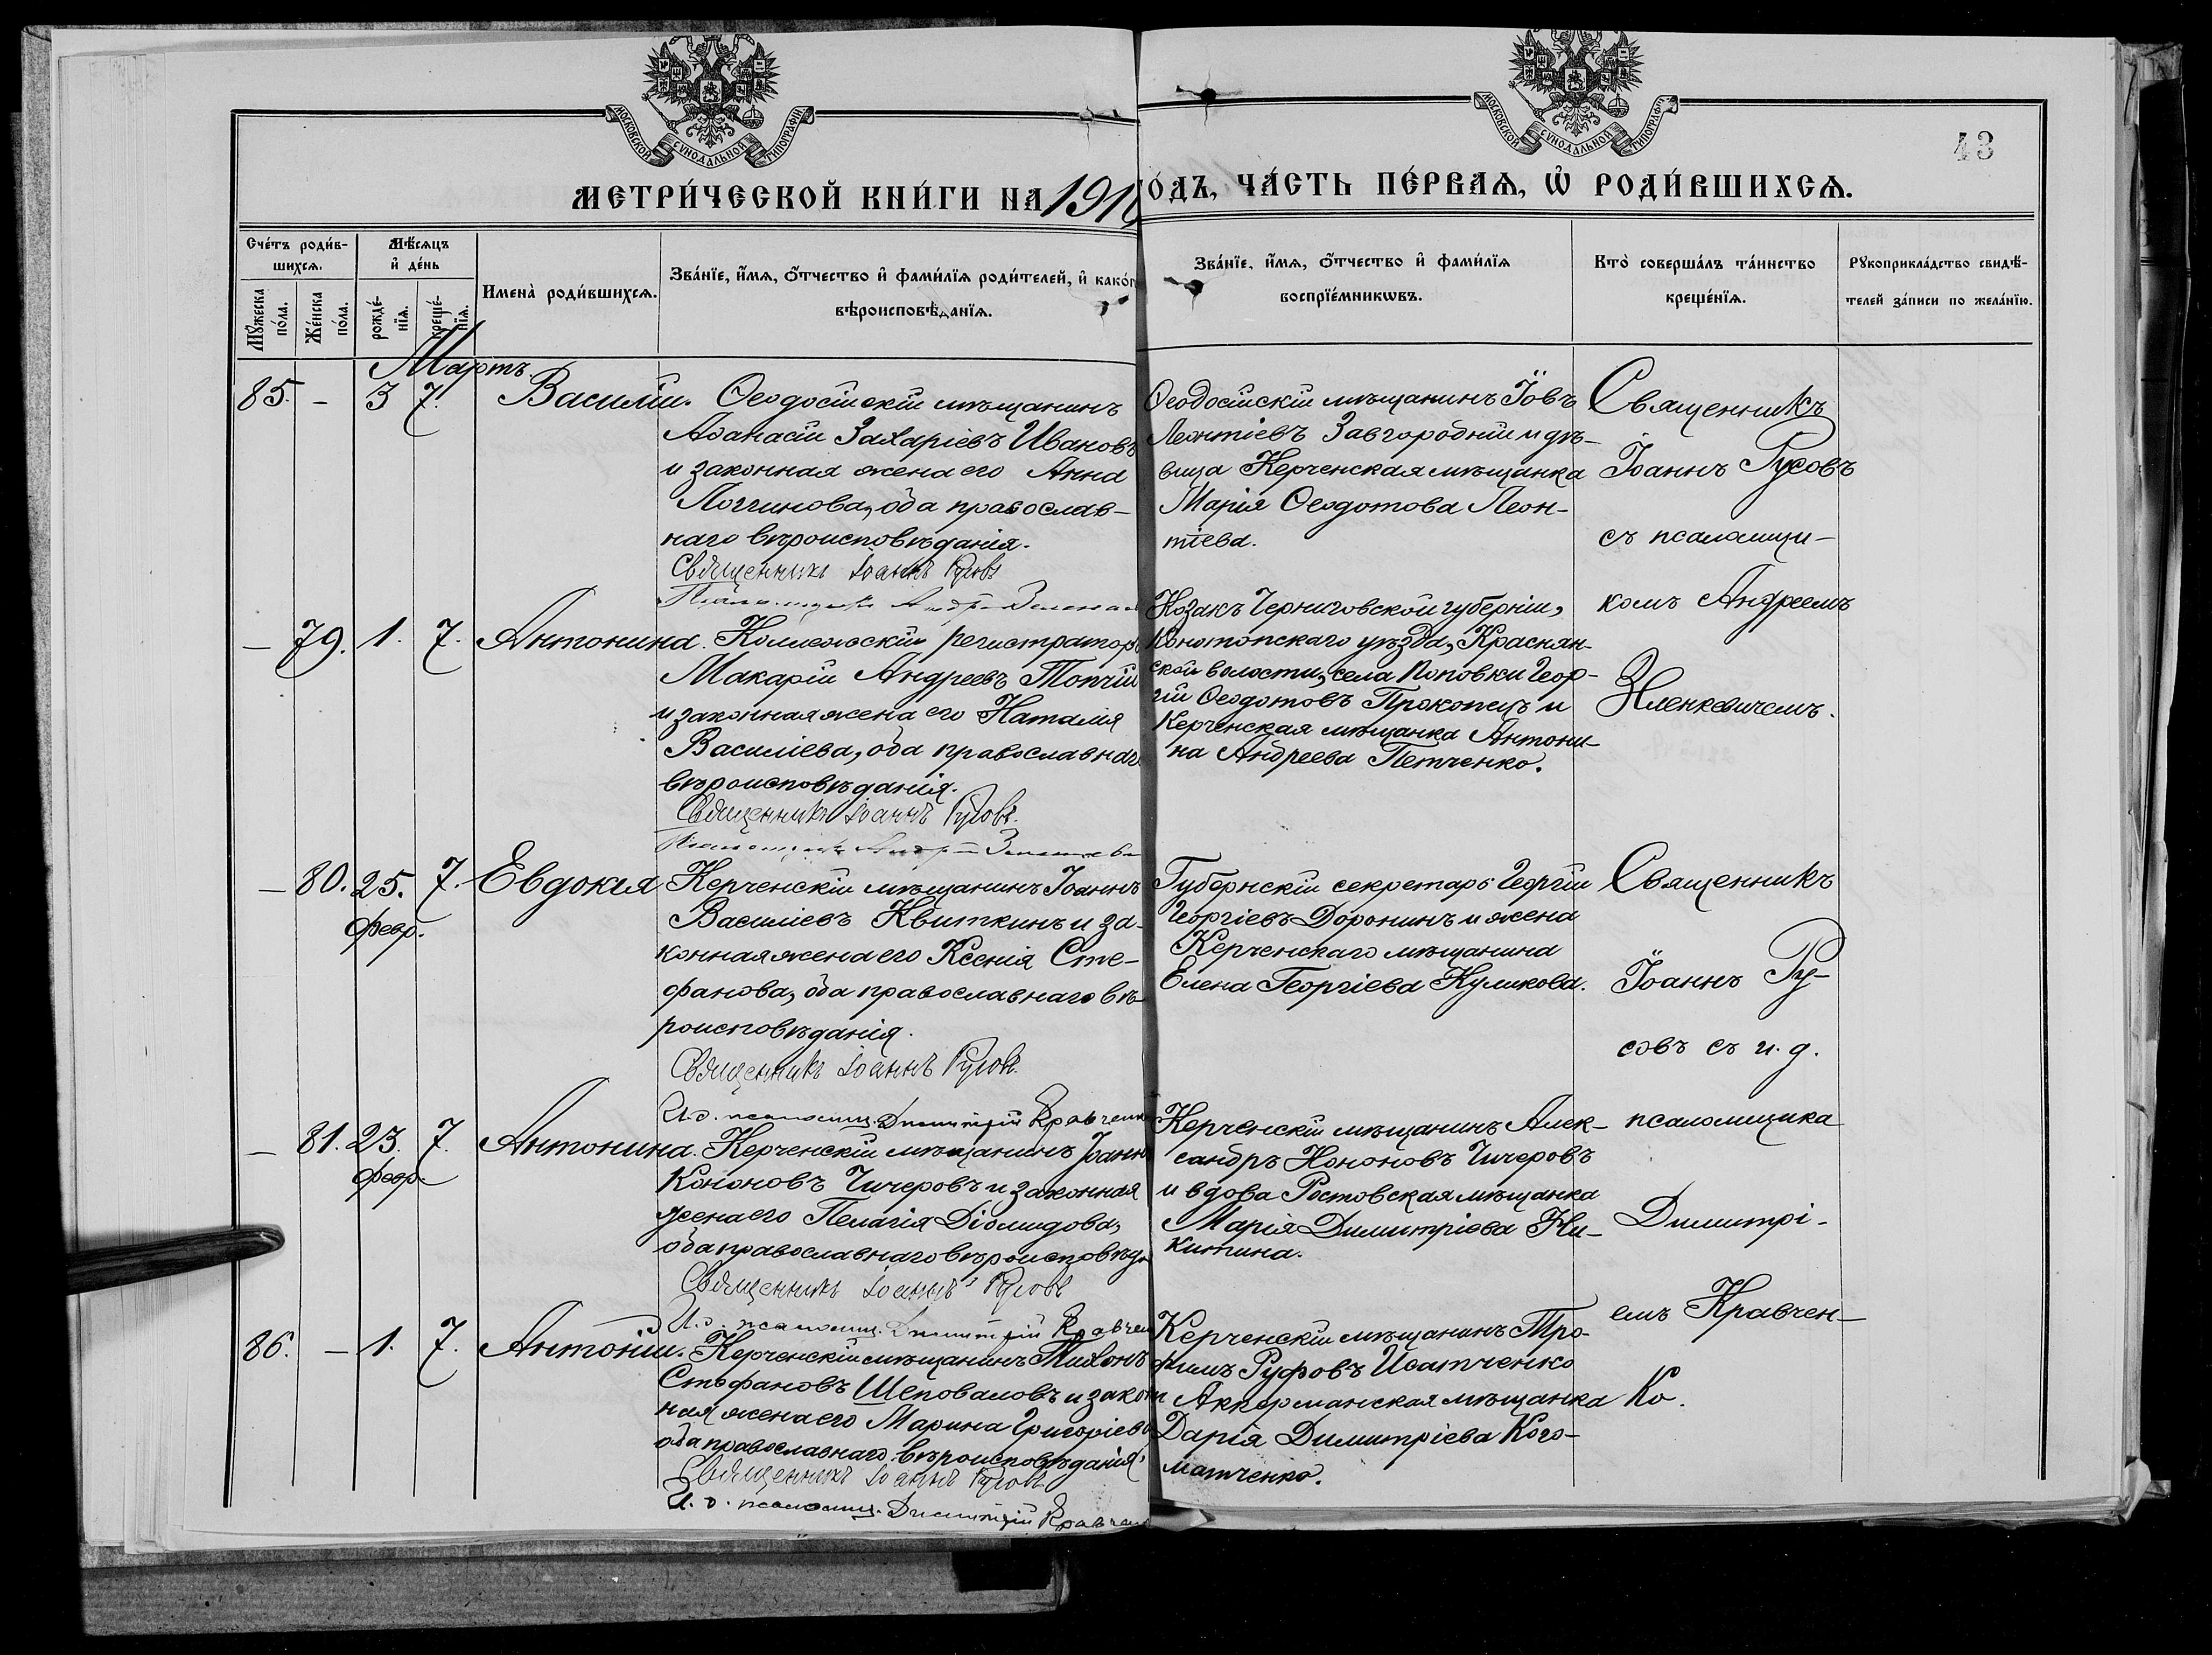 МОСКОВСКОЙ СѴНОДАЛЬНОЙ ТИПОГРАФІИ
МОСКОВСКОЙ СѴНОДАЛЬНОЙ ТИПОГРАФІИ
43
МЕТРИ́ЧЕСКОЙ КНИ́ГИ НА 191
О́ДЪ, ЧА́СТЬ ПЕ́РВАѦ, Ѡ РОДИ́ВШИХСѦ.
Сче́тъ роди́в-
шихсѧ.
Мꙋ́жеска
по́ла.
Же́нска
по́ла.
Мѣ́сѧцъ
и҆ де́нь
рожде́-
нїѧ.
креще́-
нїѧ.
Имена̀ роди́вшихсѧ.
Зва́нїе, и҆́мѧ, ѻ҆́тчество и҆ фами́лїѧ роди́телей, и҆ како́г
вѣроисповѣ́данїѧ.
Зва́нїе, и҆́мѧ, ѻ҆́тчество и҆ фами́лїѧ
воспрїе́мникѡвъ.
Кто̀ соверша́лъ та́инство
креще́нїѧ.
Рꙋкоприкла́дство свидѣ́-
телей за́писи по жела́нїю.
Мартъ.
85. - 3 7. Василій. Ѳеодосійскій мѣщанинъ
Аѳанасій Захаріевъ Ивановъ
и законная жена его Анна
Логгинова, оба православ-
наго вѣроисповѣданія.
Священникъ Іоаннъ Русовъ
Ѳеодосійскій мѣщанинъ Іовъ
Леонтіевъ Завгородній и дѣ-
вица Керченская мѣщанка
Марія Ѳеодотова Леон-
тіева.
Священникъ
Іоаннъ Русовъ
съ псаломщи-
комъ Андреемъ
Зленкевичемъ.
- 79. 1. 7. Антонина. Коллежскій регистраторъ
Макарій Андреевъ Топчій
и законная жена его Наталія
Василіева, оба православнаг
вѣроисповѣданія.
Священникъ Іоаннъ Русовъ.
Козакъ Черниговской губерніи,
Конотопскаго уѣзда, Краснян-
ской волости, села Поповки Геор-
гій Ѳеодотовъ Прокопецъ и
Керченская мѣщанка Антони-
на Андреева Петченко.
- 80. 25. 7. Евдокія Керченскій мѣщанинъ Іоаннъ
Февр.
Василіевъ Квиткинъ и за-
конная жена его Ксенія Сте-
фанова, оба православнаго вѣ-
роисповѣданія.
Священникъ Іоаннъ Русовъ.
И.д. псаломщ. Димитрій Кравченк
Губернскій секретарь Георгій
Георгіевъ Доронинъ и жена
Керченскаго мѣщанина
Елена Георгіева Куликова.
Священникъ
Іоаннъ Ру-
совъ съ и. д.
псаломщика
Димитрі-
емъ Кравчен-
ко.
- 81. 23. 7. Антонина. Керченскій мѣщанинъ Іоаннъ
Февр.
Кононовъ Чичеровъ и законная
жена его Пелагія Діомидова,
оба православнаго вѣроисповѣд
Священникъ Іоаннъ Русовъ
И.д. псаломщ. Димитрій Кравчен
Керченскій мѣщанинъ Алек-
сандръ Кононовъ Чичеровъ
и вдова Ростовская мѣщанка
Марія Димитріева Ни-
китина.
86. - 1. 7. Антоній. Керченскій мѣщанинъ Тихонъ
Стефановъ Шеповаловъ и закон
ная жена его Марина Григоріев
оба православнаго вѣроисповѣданія.
Священникъ Іоаннъ Русовъ
И. д. псаломщ. Димитрій Кравчен
Керченскій мѣщанинъ Тро-
фимъ Руфовъ Игнатченко
и Аккерманская мѣщанка
Дарія Димитріева Кого-
матченко.